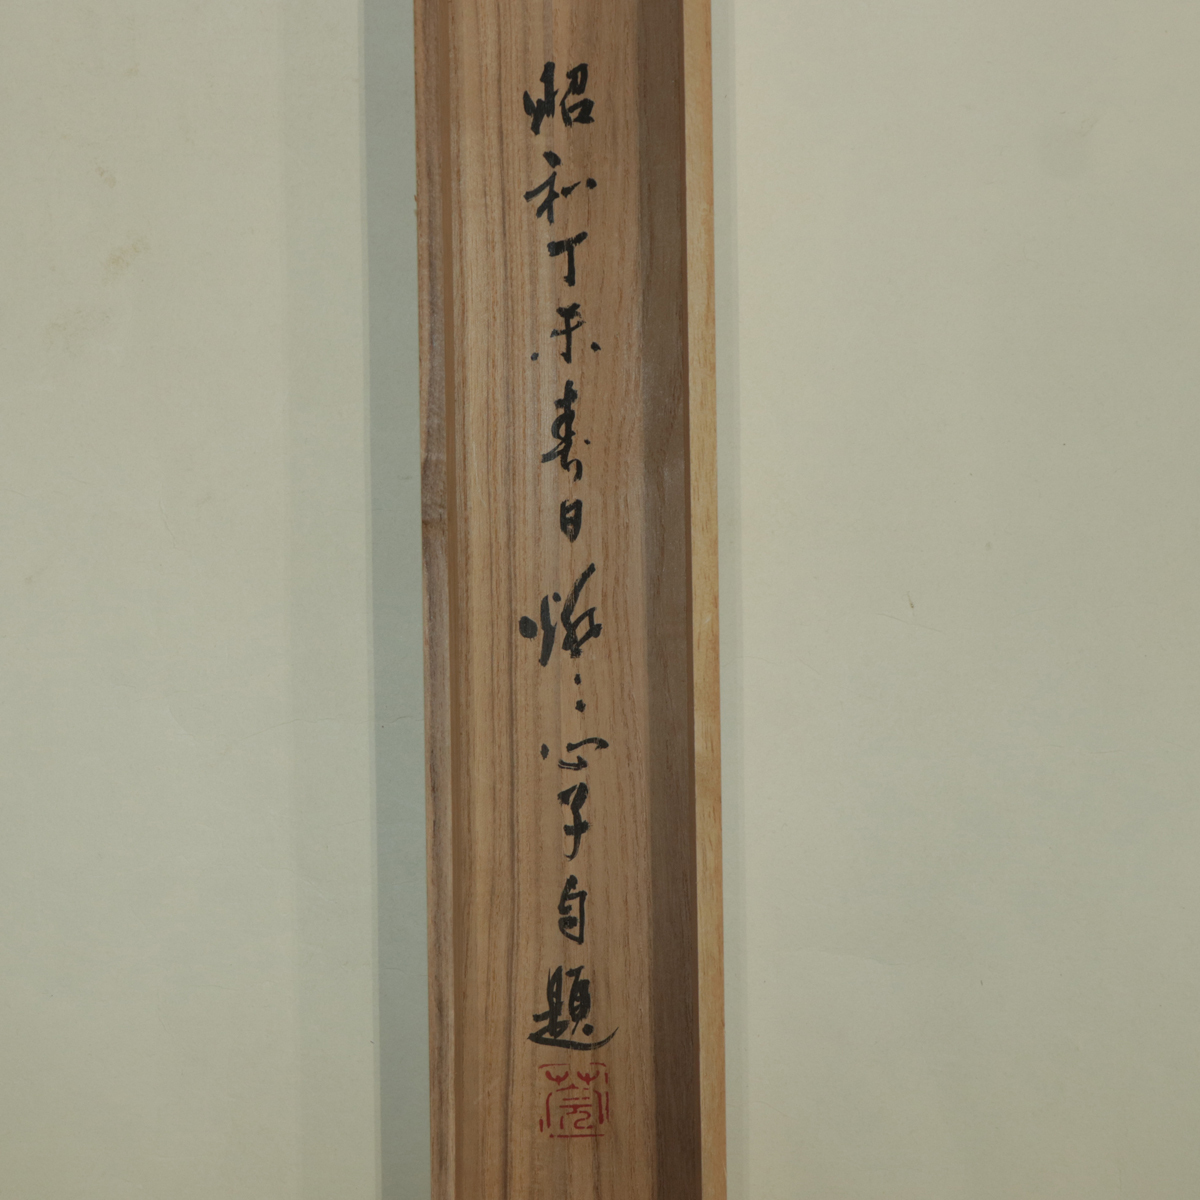 昭和丁未春日 心子自題